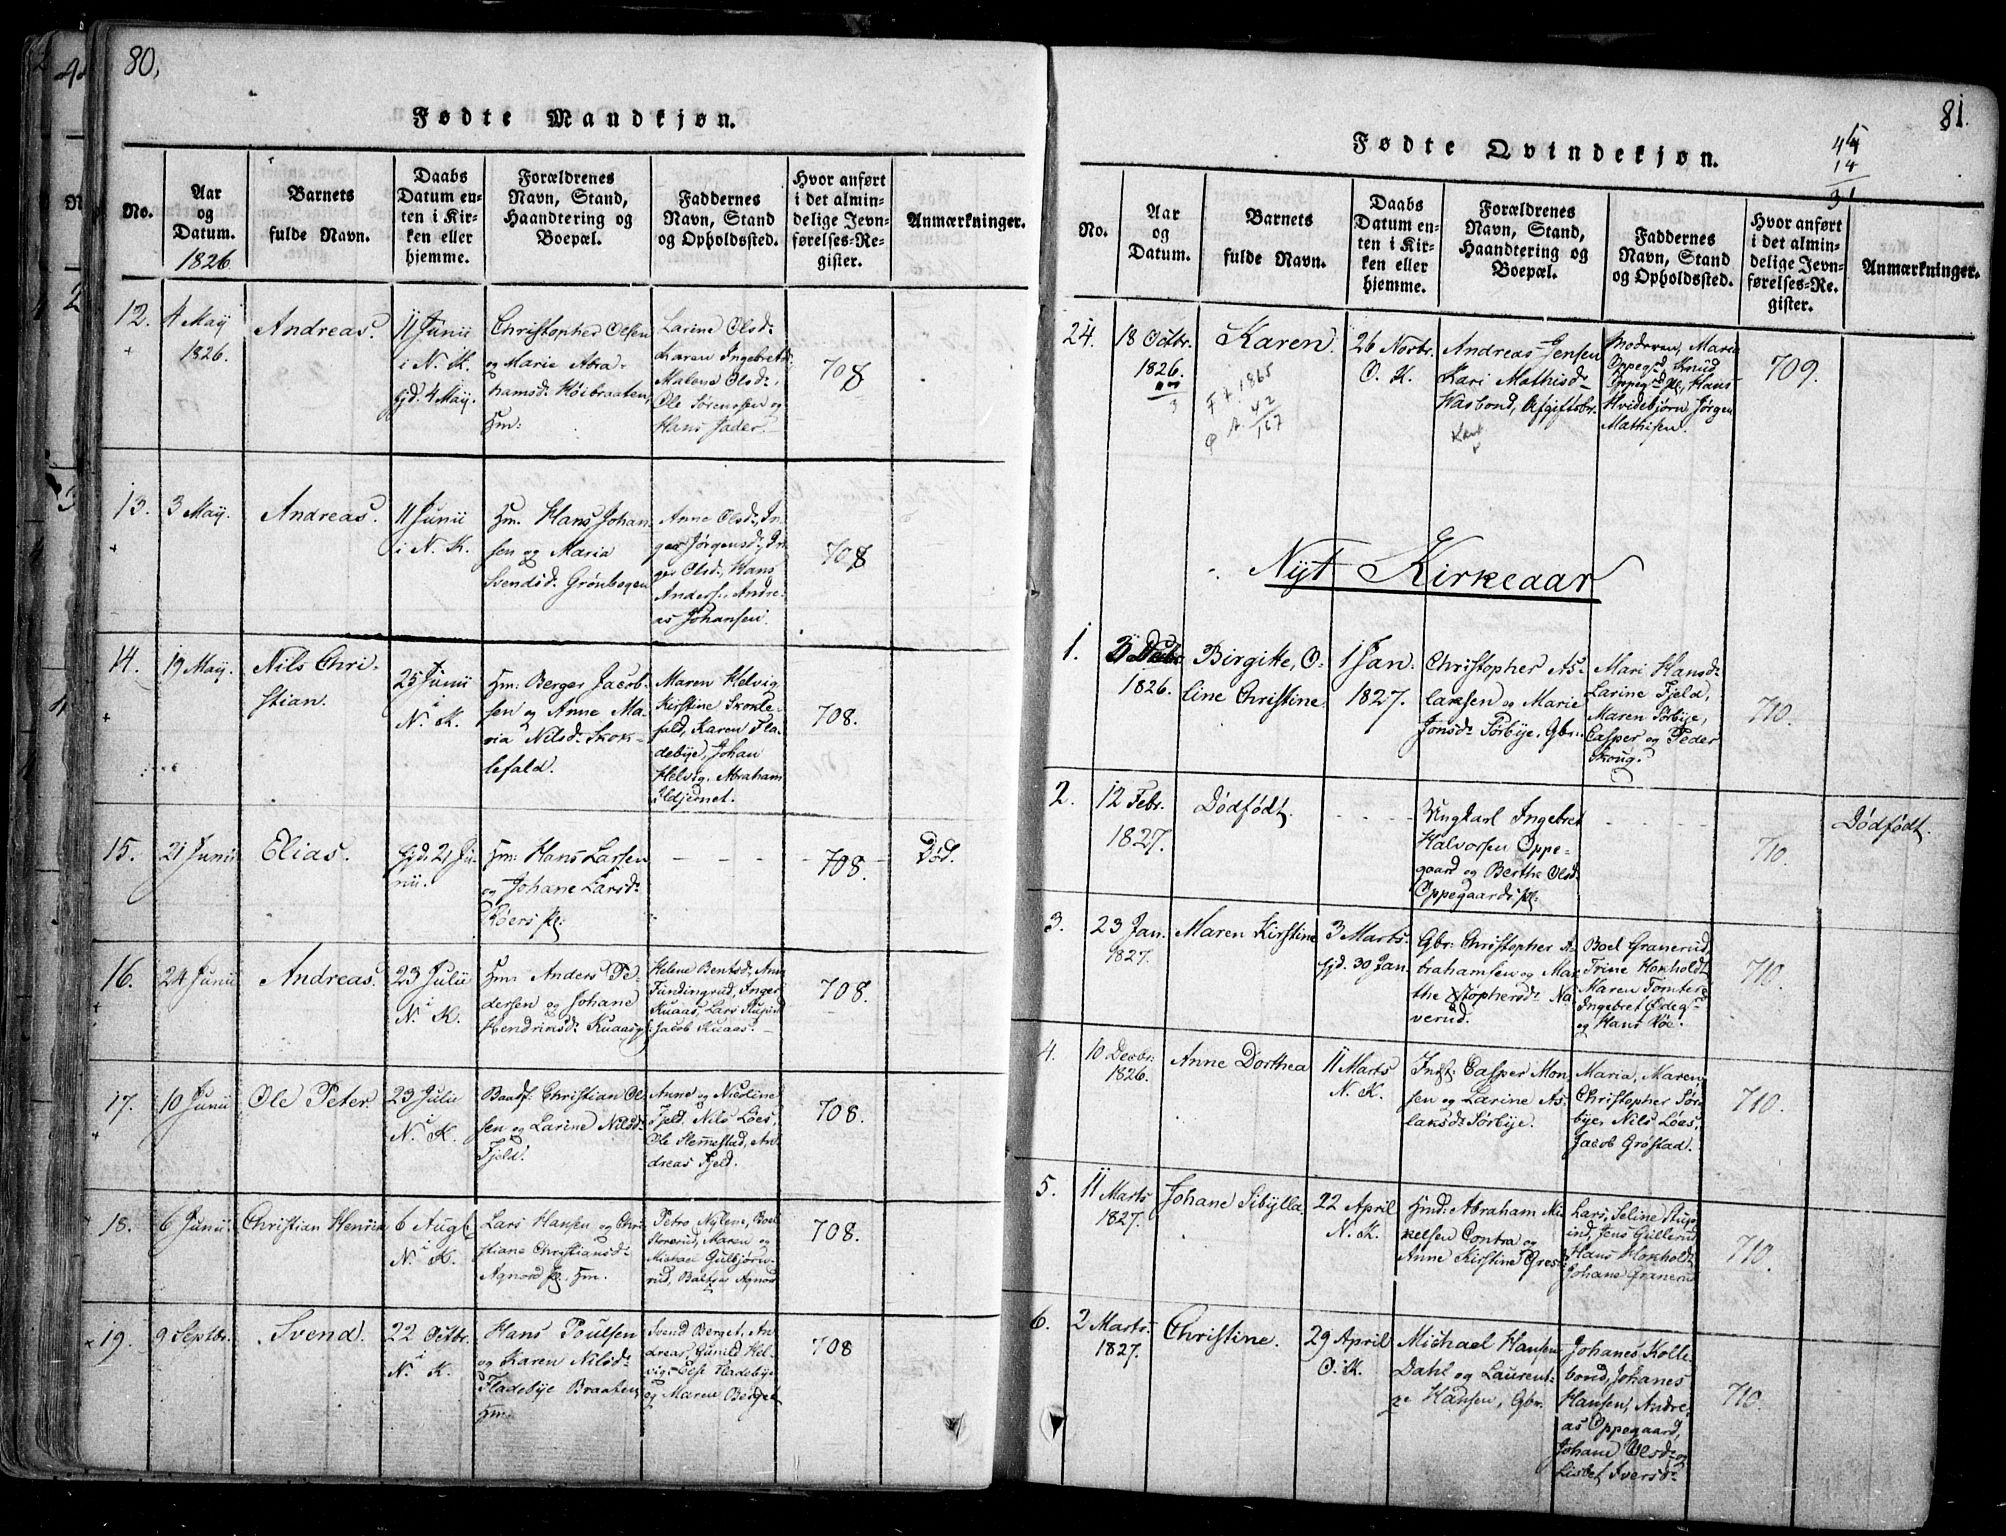 80.
Fødte Mandkjøn.
No.
Aar
og
Datum.
1826
Barnets
fulde Navn.
Daabs
Datum en-
ten i Kir-
ken eller
hjemme.
Forældrenes
Navn, Stand,
Haandtering og
Boepæl.
Faddernes
Navn, Stand
og Opholdssted.
Hvor anført
i det almin-
delige Jevn-
førelses-Re-
gister.
Anmærkninger.
12.
4 May
1826.
Andreas.
11 Junii
i N. K.
hjd. 4 May.
Christopher Olsen
og Marie Abra-
hamsd. Höibraaten,
Hm:
Larine Olsd:
Karen Ingebretsd:
Malene Olsd:,
Ole Sörensen og
Hans Jader.
708
13.
3 May.
Andreas.
11 Junii
i N. K.
Hm. Hans Johan
sen og Maria
Svendsd. Grönbegen
Anne Olsd:, In-
ger Jörgensd:, In-
ger Olsd:, Hans
Anders., Andre-
as Johansen.
708
14.
19 May.
Nils Chri-
stian.
25 Junii
i
N. K.
Hm: Berger Jacob-
sen og Anne Ma-
ria Nilsd: Skok-
lefald.
Maren Helvig
Kirstine Skokle-
fald, Karen Fla-
debye, Johan
Helvig, Abraham
Ildjernet.
708.
15.
21 Junii
Elias.
hjd: 21 Ju-
nii.
Hm: Hans Larsen
og Johane Larsd:
Röers pl:
708
Död.
16.
24 Junii
Andreas.
23 Julii
i
N. K.
Hm: Anders Pe-
dersen og Johane
Hendricsd: Kuaas pl:
Helene Bentsd:, Anne
Fundingrud, Inger
Kuaas, Lars Stupind
Jacob Kuaas.
708.
17.
10 Junii
Ole Peter.
23 Julii
i
N. K.
Baadf. Christian Ol-
sen og Larine Nilsd:
Fjeld.
Anne og Nicoline
Fjeld, Nils Löes,
Ole Hemestad, An-
dreas Fjeld.
708.
18.
6 Junii.
Christian Henrich
6 Augl
i
N. K.
Lars Hansen og Chri-
stiane Christiansd:
Agnord pl. Hm.
Petro Nylene, Boel
Storerud, Maren og
Michael Gulbjörn-
rud, Baltzer Agnord
708.
19.
9 Septbr.
Svend.
22 Octbr.
i
N. K.
Hans Poulsen
og Karen Nilsd:
Fladebye Braaten,
Hm.
Svend Berget, An-
dreas, Gunild Hel-
vig, Else Fladebye
og Maren Berget
708
81.
Fødte Qvindekjøn.
14
31
No.
Aar
og
Datum.
Barnets
fulde Navn.
Daabs
Datum en-
ten i Kir-
ken eller
hjemme.
Forældrenes
Navn, Stand,
Haandtering og
Boepæl.
Faddernes
Navn, Stand
og Opholdssted.
Hvor anført
i det almin-
delige Jevn-
førelses-Re-
gister.
Anmærkninger.
24.
18 Octbr.
1826.
3
Karen.
F 7. 1865
A. 42
167
26 Novbr.
O. K.
Andreas Jensen
Kari Mathisd:
Kasbond, Afgiftsbr.
Moderen, Maria
Oppegrd, Knud
Oppegrd pl, Hans
Hvidebjörn, Jörgen
Mathisen.
709.
Nyt Kirkeaar
1.
3 Decbr.
1826.
Birgitte, O-
line Christine.
1 Jan.
1827.
Christopher As-
laksen og Marie
Jonsd: Sörbye, Gbr:
Mari Hansd:
Larine Fjeld,
Maren Sörbye,
Casper og Peder
Skoug.
710.
2.
12 Febr.
1827.
Dödfödt.
Ungkarl Ingebret
Halvorsen Oppe-
gaard og Berthe Olsd:
Oppegaards pl:
710.
Dödfödt.
3.
23 Jan.
1827.
Maren Kirstine
3 Marts.
hjd. 30 Jan
Gbr: Christopher A-
brahamsen og Mar-
the Xstophersd: Na-
verud.
Boel Granerud
Trine Hoxholdt
Maren Tomter,
Ingebret Ödeg:
og Hans Röe.
710.
4.
10 Decbr:
1826.
Anne Dorthea
11 Marts
N. K.
Inds: Casper Mon-
sen og Larine As-
laksd: Sörbye.
Maria, Maren,
Christopher Sör-
bye, Nils Löes,
Jacob Gröstad.
710.
5.
11 Marts
1827.
Johane Sibylla
22 April
N. K.
Hmd: Abraham Mi-
kelsen Contra og
Anne Kirstine Gres:
Lars, Seline Stup-
ind, Jens Gullerud,
Hans Hoxholdt
Johane Granerud
710.
6.
2 Marts.
1827.
Christine.
29 April
O. K.
Michael Hansen
Dahl og Laurent-
ze Hansen, Gbr.
Johanes Kolle-
bond, Johanes
Hansen, Andre-
as Oppegaard,
Johane Olsd: og
Lisbet Iversd:
710.